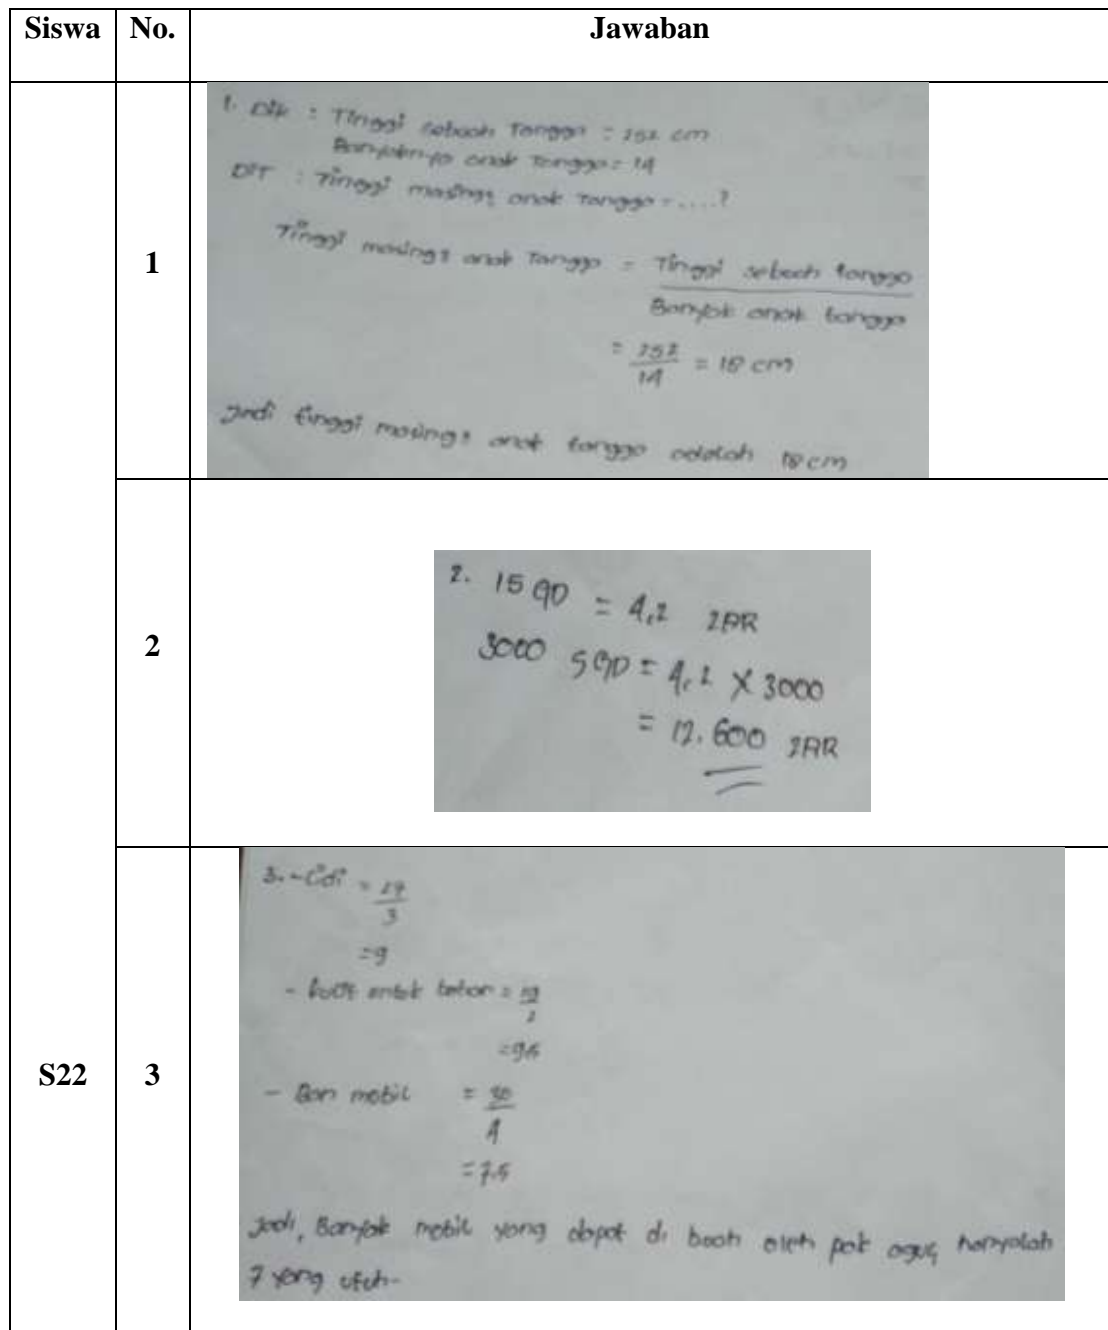 Siswa No. Jawaban
S22
1
1. Dik : Tinggi sebuah Tangga = 252 cm
Banyaknya anak Tangga = 14
DIT : Tinggi masing2 anak Tangga = ....?
Tinggi masing2 anak Tangga = Tinggi sebuah tangga
Banyak anak tangga
= 252
14
= 18 cm
Jadi tinggi masing2 anak tangga adalah 18 cm
2
2. 1 SGD = 4,2 ZAR
3000 SGD = 4,2 X 3000
= 12.600 ZAR
3
3. - = 27
3
= 9
- untuk = 19
2
= 9,5
- Ban mobil = 30
4
= 7,5
Jadi, Banyak mobil yang dapat di buat oleh pak agus hanyalah
7 yang utuh-